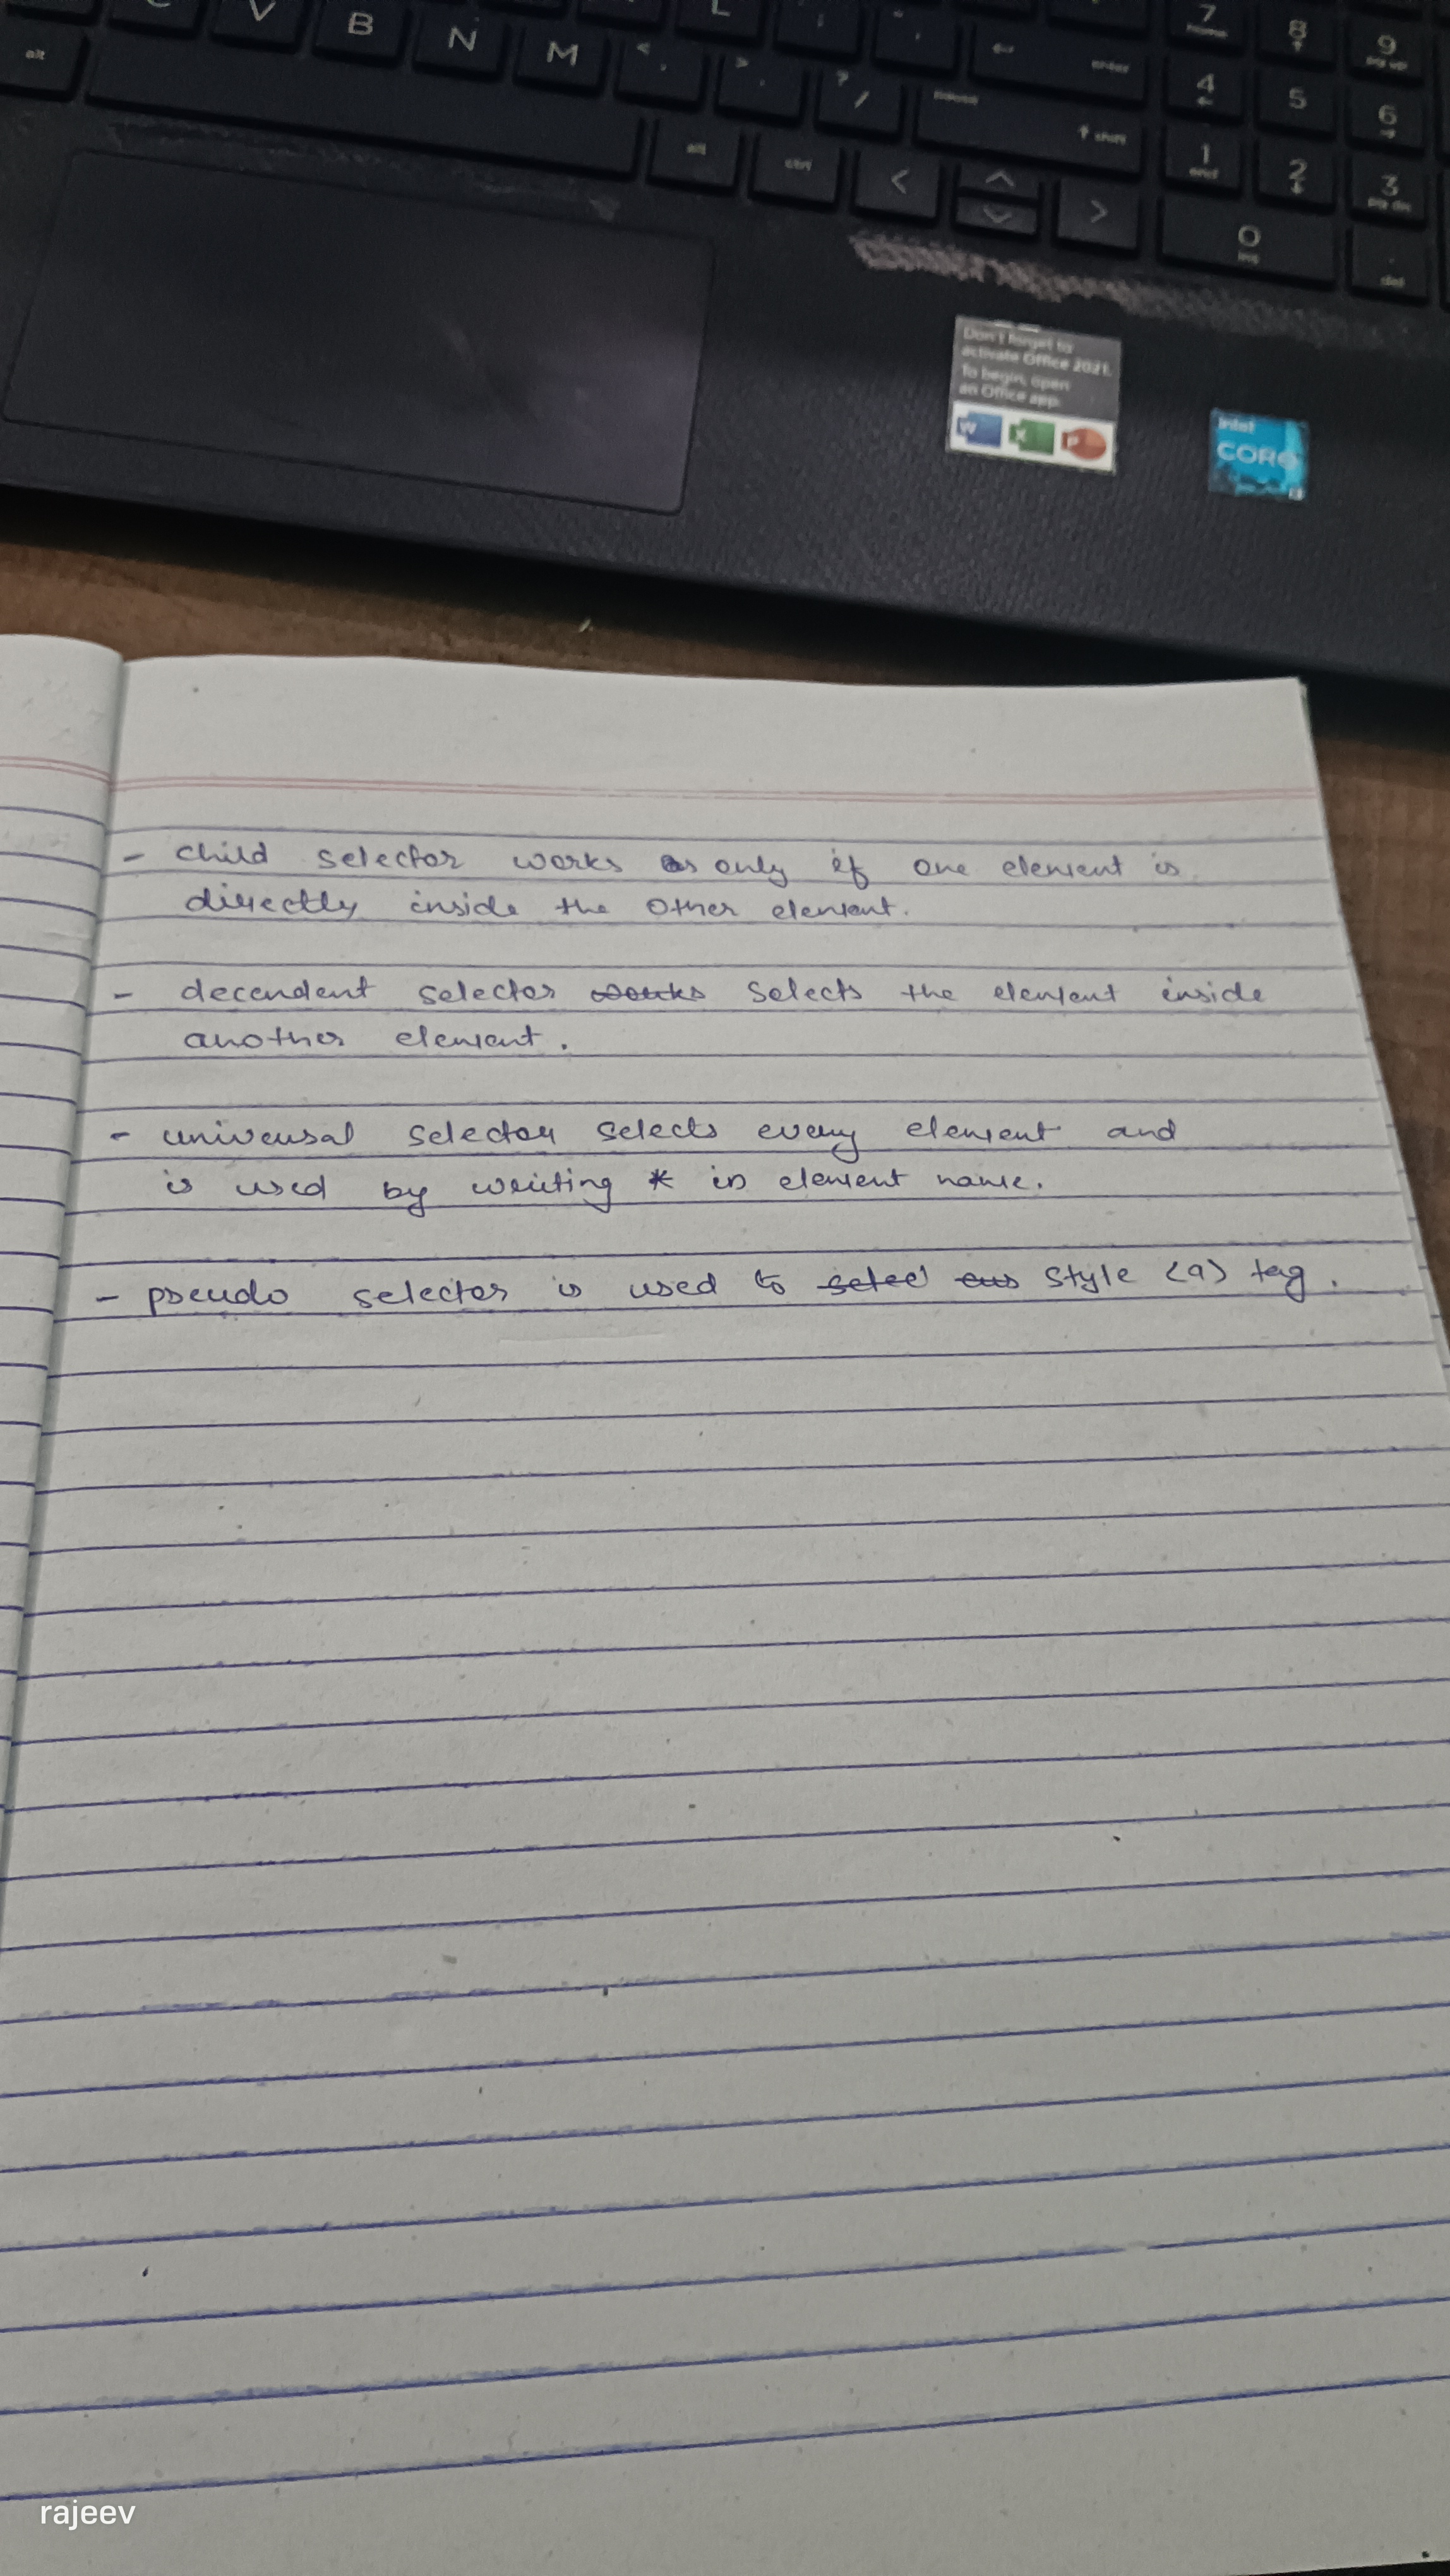 C V B N M L
alt
< ,
> .
? /
enter
pause
↑ shift
alt
ctrl
<
^
>
7
home
8
9
pg up
4
5
6
1
end
2
3
pg dn
0
ins
.
del
Don't forget to
activate Office 2021.
To begin, open
an Office app.
W X P
intel
CORE
i3
- child selector works only if one element is
directly inside the other element.
- decendent selector works selects the element inside
another element.
- universal selector selects every element and
is used by writing * in element name.
- pseudo selector is used to select style <a> tag.
rajeev